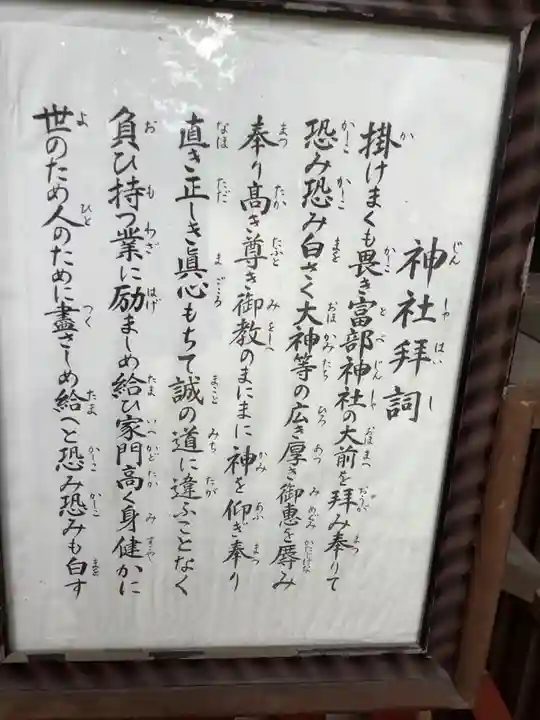 神社拝詞
掛けまくも畏き富部神社の大前を拝み奉りて
恐み恐み白さく大神等の広き厚き御恵を辱み
奉り高き尊き御教のまにまに神を仰ぎ奉り
直き正しき眞心もちて誠の道に違ふことなく
負ひ持つ業に励ましめ給ひ家門高く身健かに
世のため人のために盡さしめ給へと恐み恐みも白す